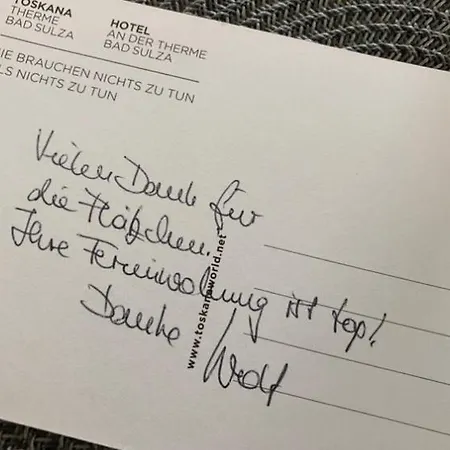 TOSKANA
THERME
BAD SULZA
HOTEL
AN DER THERME
BAD SULZA
SIE BRAUCHEN NICHTS ZU TUN
ALS NICHTS ZU TUN
Vielen Dank für
die Plätzchen.
Ihre Ferienwohnung ist top!
Danke
www.toskanaworld.net